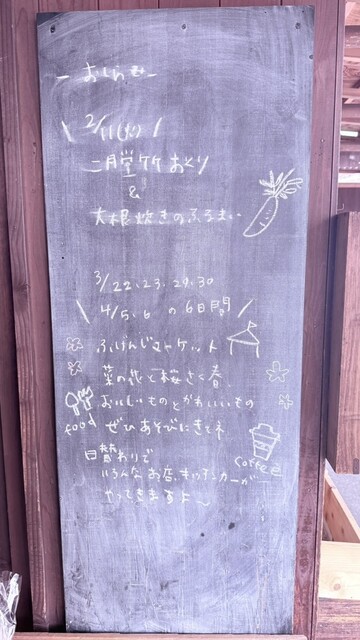 ーおしらせー
\ 2/11(火) /
二月堂竹おくり
&
大根炊きのふるまい
3/22.23.29.30
\ 4/5.6 の6日間 /
ふげんじマーケット
菜の花と桜さく春
おいしいものとかわいいもの
food ぜひあそびにきてネ
coffee
日替わりで
いろんなお店、キッチンカーが
やってきますよ〜